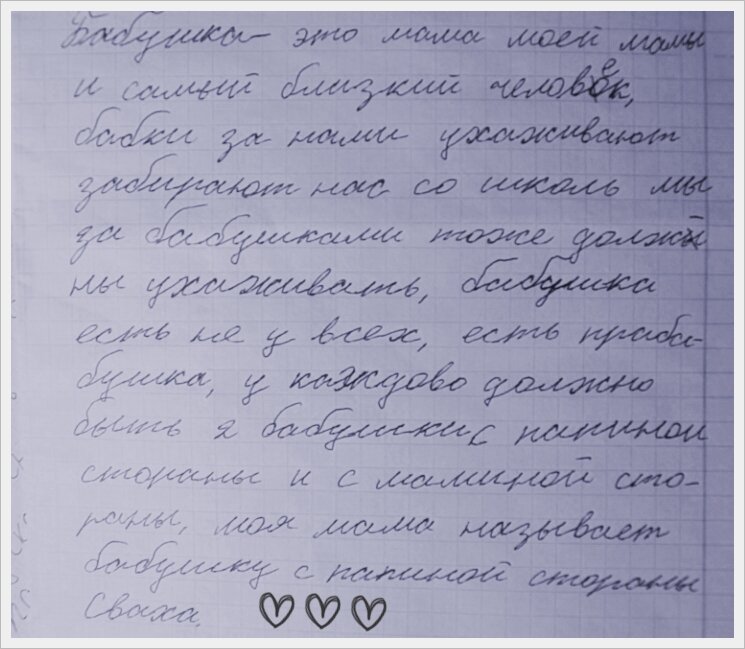 Бабушка- это мама моей мамы
и самый близкий человек,
бабки за нами ухаживают
забирают нас со школь мы
за бабушками тоже долж
ны ухаживать, бабушка
есть не у всех, есть праба-
бушка, у каждово должно
быть 2 бабушки с папиной
стораны и с маминой сто-
раны, моя мама называет
бабушку с папиной стораны
Сваха.